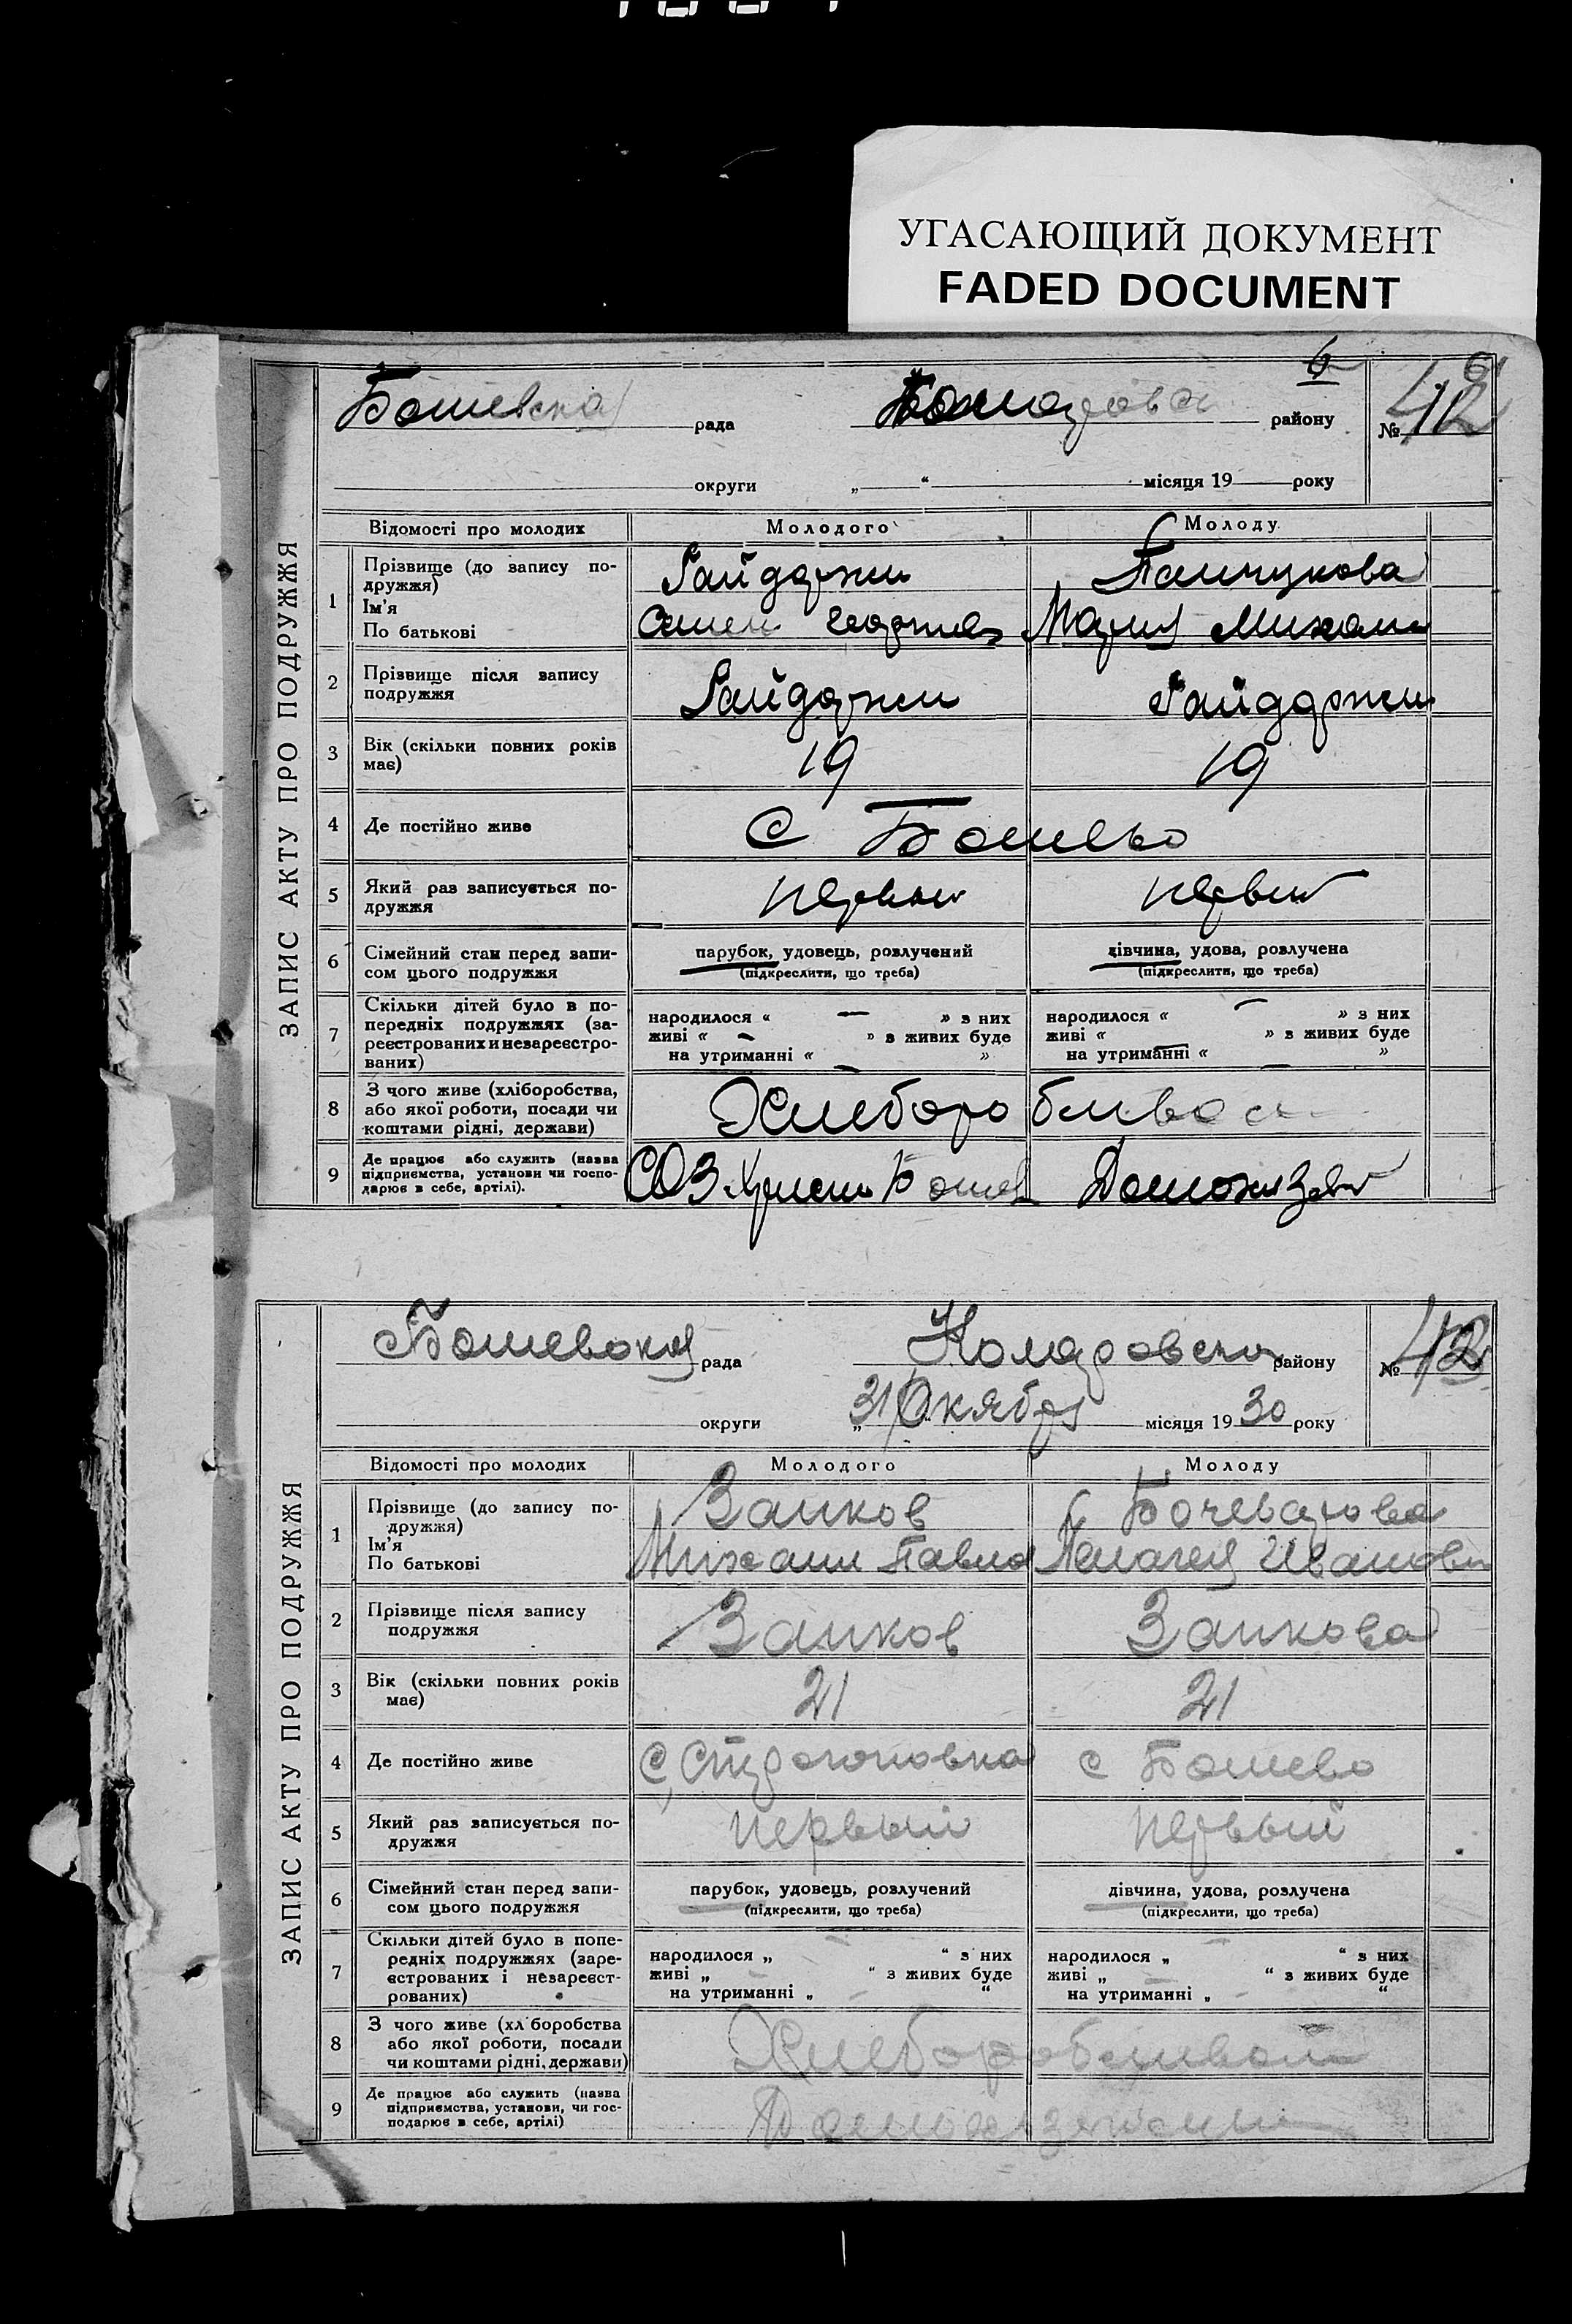 УГАСАЮЩИЙ ДОКУМЕНТ
FADED DOCUMENT
6
Ботевская рада района району № 42
округи „ “ місяця 19 року
ЗАПИС АКТУ ПРО ПОДРУЖЖЯ
Відомості про молодих Молодого Молоду
1 Прізвище (до запису по-
дружжя)
Гайдаржи
Ім'я
По батькові
Семен Георгиев Мария Михаил
2 Прізвище після запису
подружжя
Гайдаржи Гайдаржи
3 Вік (скільки повних років
має)
19 19
4 Де постійно живе С Ботево
5 Який раз записується по-
дружжя
первый первый
6 Сімейний стан перед запи-
сом цього подружжя
парубок, удовець, розлучений дівчина, удова, розлучена
(підкреслити, що треба) (підкреслити, що треба)
7 Скільки дітей було в по-
передніх подружжях (за-
реєстрованих и незареєстро-
ваних)
народилося « — » з них народилося « — » з них
живі « — » з живих буде живі « » з живих буде
на утриманні « » на утриманні « »
8 З чого живе (хліборобства,
або якої роботи, посади чи
коштами рідні, держави)
Хлебороб
9 Де працює або служить (назва
підприємства, установи чи госпо-
дарює в себе, артілі).
СОЗ Ботев
Ботевская рада Коларовского району № 42
округи „31 Октября місяця 1930 року
ЗАПИС АКТУ ПРО ПОДРУЖЖЯ
Відомості про молодих Молодого Молоду
1 Прізвище (до запису по-
дружжя)
Занков Бочеварова
Ім'я
По батькові
Михаил Павло Пелагея Иванов
2 Прізвище після запису
подружжя
Занков Занкова
3 Вік (скільки повних років
має)
21 21
4 Де постійно живе С, Строгоновка с Ботево
5 Який раз записується по-
дружжя
первый первый
6 Сімейний стан перед запи-
сом цього подружжя
парубок, удовець, розлучений дівчина, удова, розлучена
(підкреслити, що треба) (підкреслити, що треба)
7 Скільки дітей було в попе-
редніх подружжях (заре-
єстрованих і незареєст-
рованих)
народилося „ “ з них народилося „ “ з них
живі „ “ з живих буде живі „ “ з живих буде
на утриманні „ “ на утриманні „ “
8 З чого живе (хл боробства
або якої роботи, посади
чи коштами рідні, держави)
Хлеборобством
9 Де працює або служить (назва
підприємства, установи, чи гос-
подарює в себе, артілі)